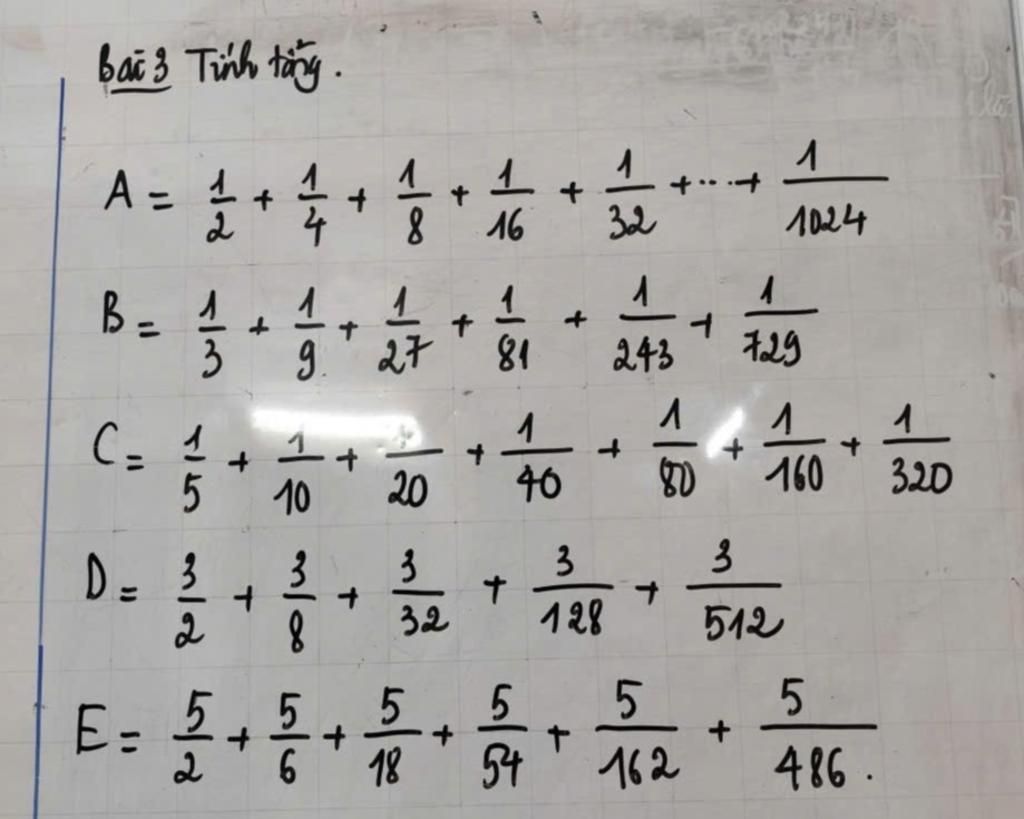 Bài 3 Tính tổng.
A = 1/2 + 1/4 + 1/8 + 1/16 + 1/32 + ... + 1/1024
B = 1/3 + 1/9 + 1/27 + 1/81 + 1/243 + 1/729
C = 1/5 + 1/10 + 1/20 + 1/40 + 1/80 + 1/160 + 1/320
D = 3/2 + 3/8 + 3/32 + 3/128 + 3/512
E = 5/2 + 5/6 + 5/18 + 5/54 + 5/162 + 5/486.